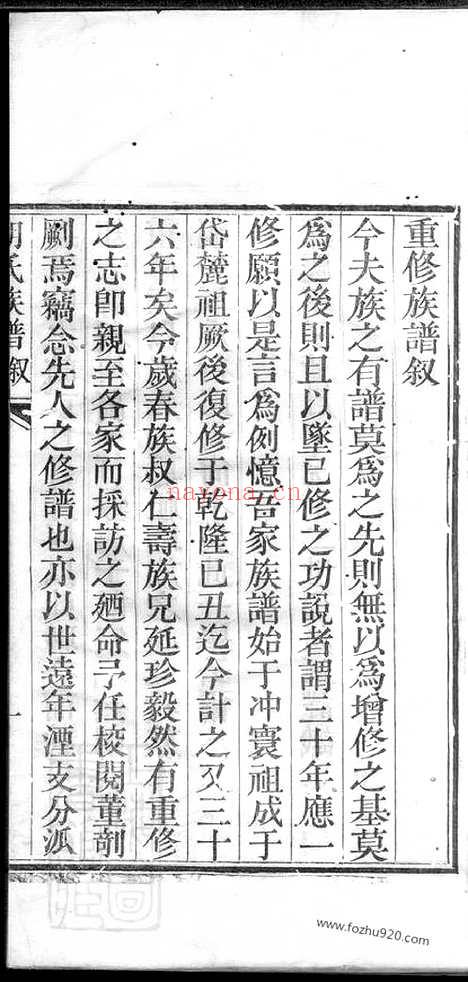 重修族譜叙
今夫族之有譜莫爲之先則無以爲增修之基莫
爲之後則且以墜已修之功說者謂三十年應一
修願以是言爲例憶吾家族譜始于冲寰祖成于
岱麓祖厥後復修于乾隆己丑迄今計之又三十
六年矣今歲春族叔仁壽族兄延珍毅然有重修
之志卽親至各家而採訪之廼命予任校閱董剞
劂焉竊念先人之修譜也亦以世遠年湮支分派
胡氏族譜叙
一
nayona.cn
www.fozhu920.com